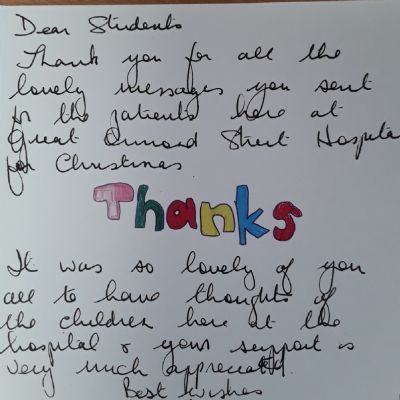 Dear Students
Thank you for all the
lovely messages you sent
for the patients here at
Great Ormond Street Hospital
for Christmas
Thanks
It was so lovely of you
all to have thoughts of
the children here at the
hospital & your support is
very much appreciated.
Best wishes